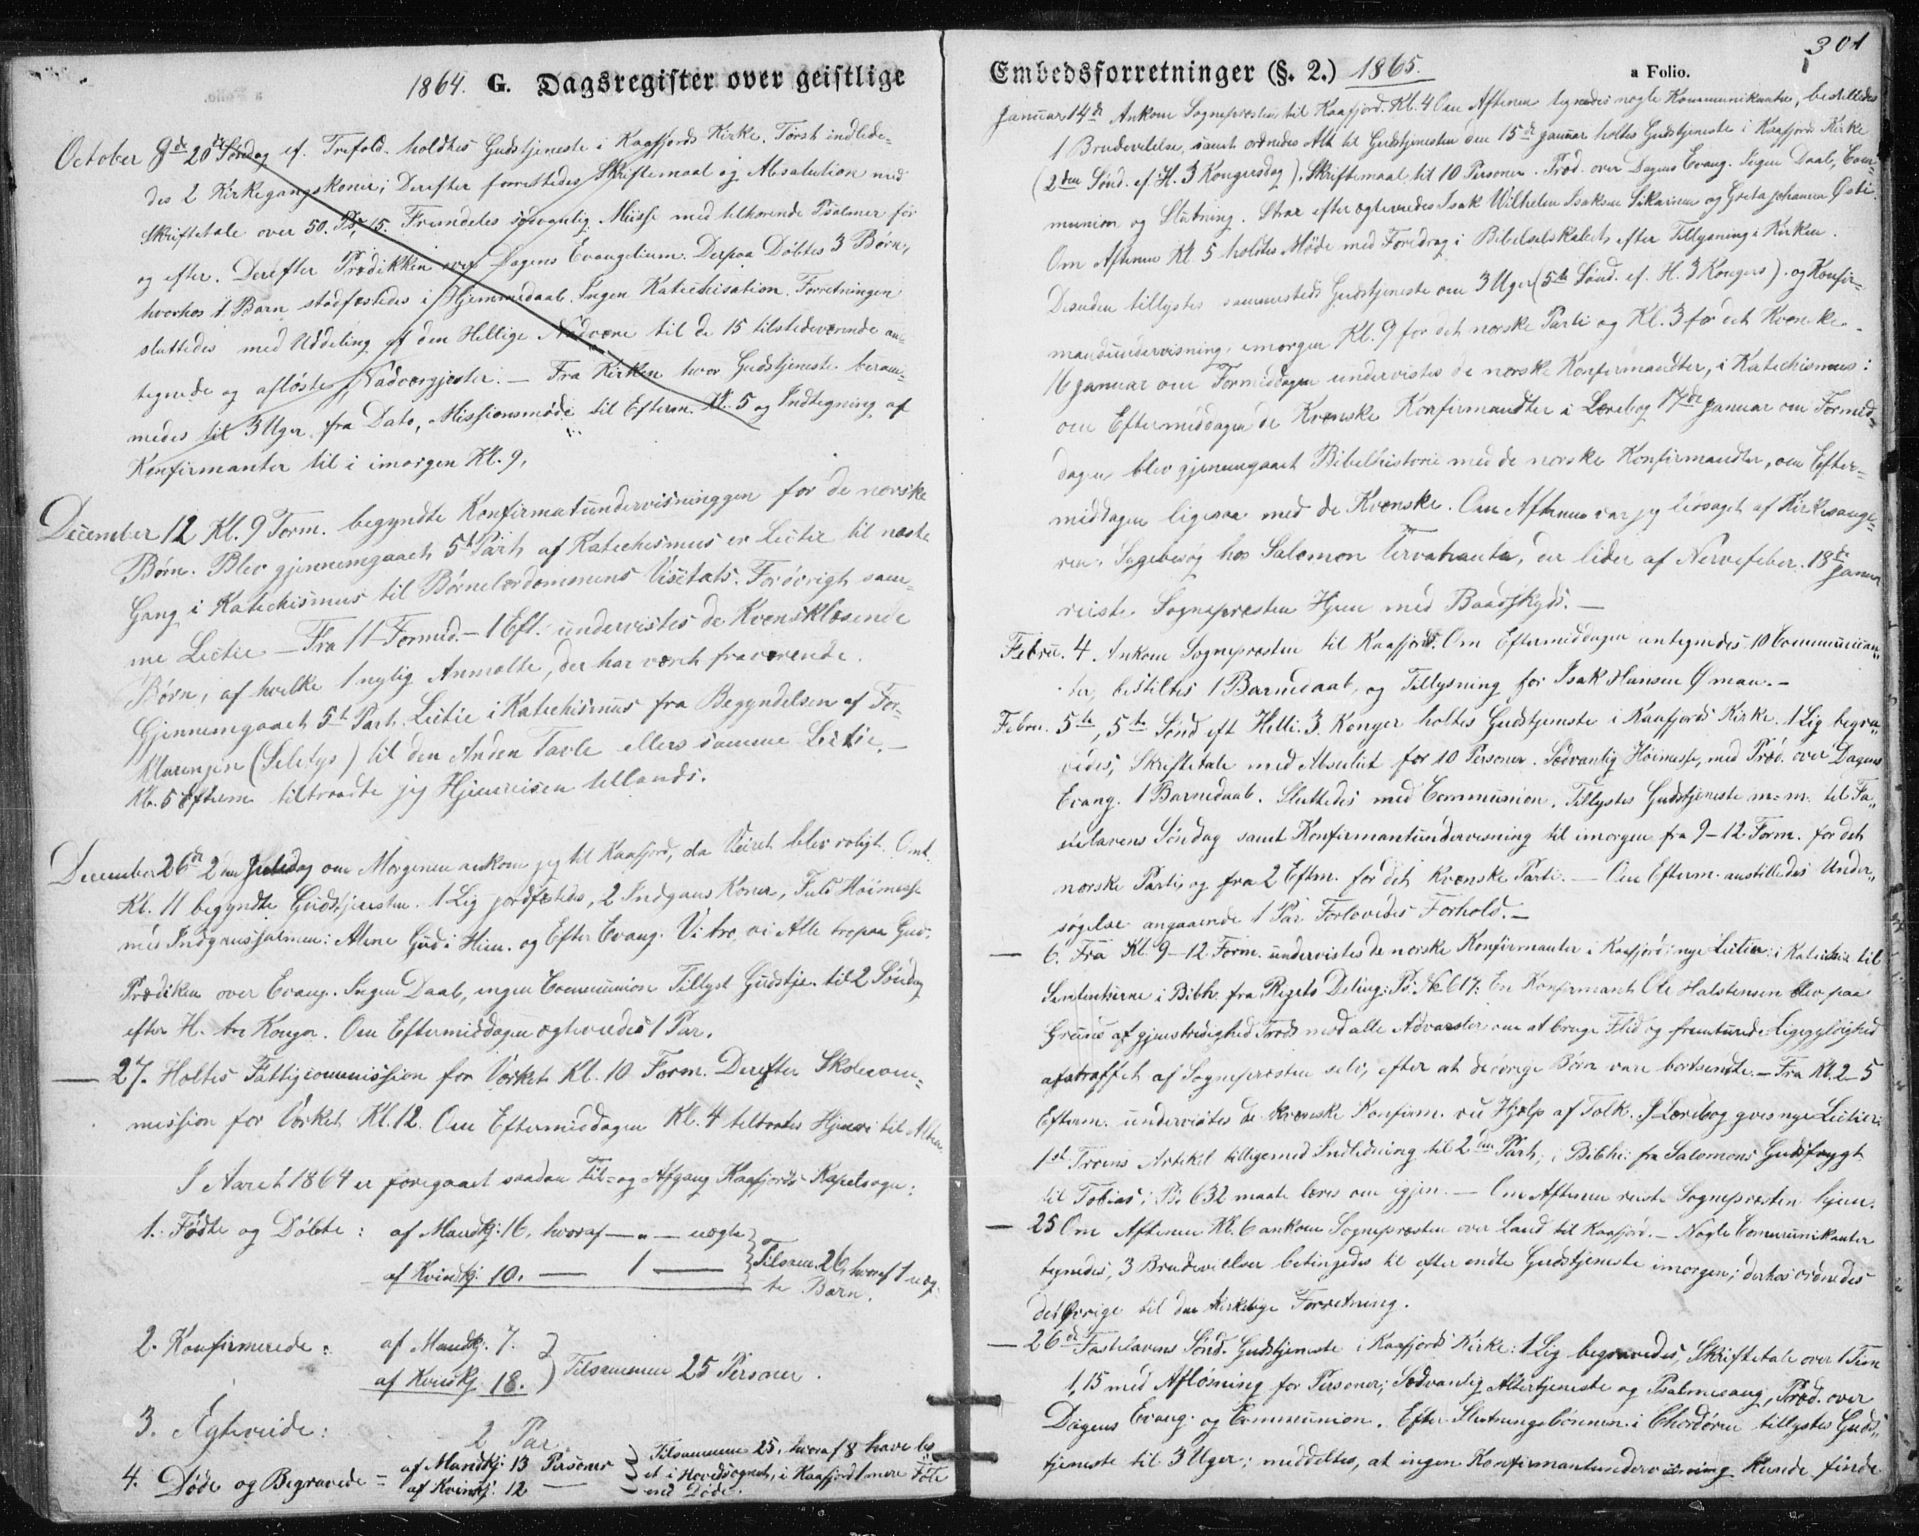 1864. G. Dagsregister over geistlige
October 9de 20de Søndag ef. Trefold. holdtes Gudstjeneste i Kaafjords Kirke. Først indlede-
des 2 Kirkegangskoner; Derefter forrettedes Skriftemaal og Absolution med
Skriftetale over 50. Ps, 15. Fremdeles sædvanlig Messe med tilhørende Psalmer før
og efter. Derefter Prædikken over Dagens Evangelium. Derpaa Døbtes 3 Børn,
hvorhos 1 Barn stadfæstedes i Hjemmedaab. Ingen Katechisation. Forretningen
sluttedes med Uddeling af den Hellige Nadvere til de 15 tilstedeværende an-
tegnede og afløste Nadvergjester. — Fra Kirken hvor Gudstjeneste beram-
medes til 3 Uger fra Dato, Missionsmøde til Efterm. Kl. 5 og Indtegning af
Konfirmanter til i imorgen Kl. 9,
December 12 Kl. 9 Form. begyndte Konfirmatundervisninggen for de norske
Børn. Blev gjennemgaaet 5t Part af Katechismus er Lectie til næste
Gang i Katechismus til Børnelærdommens Visitats. Forøvrigt sam-
me Lectie — Fra 11 Formid. — 1 Eft. undervistes de Kvensklæsende
Børn, af hvilke 1 nylig Anmeldte, der har været fraværende.
Gjennemgaaet 5t Part. Lectie i Katechismus fra Begyndelsen af For-
klaringen (Selitys) til den Anden Tavle ellers samme Lectie. —
Kl. 5 Efterm tiltraadte jeg Hjemreisen tillands.
December 26de 2den Juledag om Morgenen ankom jeg til Kaafjord, da Veiret blev roligt. Omt.
Kl. 11 begyndte Gudstjenesten. 1 Lig jordfæstedes, 2 Indgans Koner, Fuld Høimesse
med Indgansjalmen: Alene Gud i Him. og Efter Evang. Vi tro, vi Alle tro paa Gud.
Prædiken over Evang. Ingen Daab, ingen Communion Tillyst Gudstje. til 2 Søndag
efter H. tre Konger. Om Eftermiddagen ægteviedes 1 Par.
— 27. Holtes Fattigcommission for Værket Kl. 10 Form. Derefter Skolecom-
mission for Værket Kl. 12. Om Eftermiddagen Kl. 4 tiltraates Hjemrei til Alten.
I Aaret 1864 er foregaaet saadan Til- og Afgang Kaafjords Kapelsogn:
1. Fødte og Døbte: af Mandkj: 16, hvoraf — „ — uægte
af Kvindkj. 10. — 1 — } Tilsam. 26, hvoraf 1 uæg-
te Barn.
2. Konfirmerede: af Mandkj. 7.
af Kvindkj. 18. } Tilsammen 25 Personer.
3. Ægteviede: 2 Par.
4. Døde og Begravede = af Mandkj: 13 Personer
af Kvinkj. 12 — } Tilsammen 25, hvoraf 8 have
et i Hovedsognet, i Kaafjord 1 mere Føte
end Døde.
301
Embedsforretninger (§. 2.) 1865. a Folio.
Januar 14de Ankom Sognepræsten til Kaafjord. Kl. 4 Om Aftenen tegnedes nogle Kommunikanter, bestilledes
1 Brudevielse, samt ordnedes Alt til Gudstjenesten den 15de januar holtes Gudstjeneste i Kaafjord Kirke
(2den Sønd. ef. H. 3 Kongersdag). Skriftemaal til 10 Personer. Præd. over Dagens Evang. Ingen Daab, Com-
munion og Slutning. Strax efter ægteviedes Isak Wilhelm Isaksen Sikainen og Greta Johanna
Om Aftenen Kl. 5 holdtes Møde med Foredrag i Bibelselskabet, efter Tillysning i Kirken.
Desuden tillystes sammesteds Gudstjeneste om 3 Uger (5te Sønd. ef. H. 3 Kongers). og Konfir-
mandundervisning, imorgen Kl. 9 for det norske Parti og Kl. 3 for det Kvenske. —
16 januar om Formiddagen undervistes de norske Konfirmandter, i Katechismus:
om Eftermiddagen de Kvenske Konfirmandter i Lærebog 17de januar om Formid-
dagen blev gjennemgaaet Bibelhistorie med de norske Konfirmandter, om Efter-
middagen ligesaa med de Kvenske. Om Aftenen var jeg ledsaget af Kirkesange-
ren i Sygebesøg hos Salomon Tervahauta, der lider af Nervefeber. 18de januar
reiste Sognepræsten Hjem med Baadskyds. —
Febru. 4. Ankom Sognepræsten til Kaafjord. Om Eftermiddagen antegnedes 10 Communican-
ter, bestiltes 1 Barnedaab, og Tillysning for Isak Hansen Øman. —
Febru. 5te, 5te Sønd eft Helli. 3. Konger holtes Gudstjeneste i Kaafjords Kirke. 1 Lig begra-
vedes, Skriftetale med Absolut for 10 Personer. Sædvanlig Høimesse, med Præd. over Dagens
Evang. 1 Barnedaab. Sluttedes med Communion. Tillystes Gudstjeneste m. m. til Fa-
stelavens Søndag samt Konfirmantundervisning til imorgen fra 9–12 Form. for det
norske Parti, og fra 2 Eftm. for det Kvenske Parti. — Om Efterm. anstilledes Under-
søgelse angaaende 1 Par Forlovedes Forhold. —
— 6. Fra Kl. 9–12 Form. undervistes de norske Konfirmanter i Kaafjord; nye Lectier: i Katechis til
Sententserne i Bibh. fra Rigets Deling: Ps: No 617: En Konfirmant Ole Halstensen blev paa
Grund af gjenstridighed Trods med alle Advarsler om at bruge Flid og fremturede Ligegyldighed
afstraffet af Sognepræsten selv, efter at de øvrige Børn vare bortsendte. — Fra Kl. 2–5
Efterm. undervistes de kvenske Konfirm. ved Hjælp af Tolk. I Lærebog gves nye Lectier:
1st Troens Artikel tilligemed Indledning til 2den Part; i Bibhi: fra Salomons Gudsfrygt
til Tobias; Ps. 632 maate læres om igjen. — Om Aftenen reiste Sognepræsten hjem.
— 25 Om Aftenen Kl. 6 ankom Sognepræsten over Land til Kaafjord. — Nogle Communikanter
tegnedes, 3 Brudevielser betingedes til efter endte Gudstjeneste imorgen; derhos ordnedes
det Øvrige til den kirkelige Forretning.
— 26de Fastelavens Sønd. Gudstjeneste i Kaafjords Kirke: 1 Lig begravedes, Skriftetale over 1 Tim
1,15 med Afløsning for Personer; Sædvanlig Altertjeneste og Psalmesang, Præd. over
Dagens Evang. og Communion. Efter Slutningsbønnen i Chordøren tillystes Guds-
tjeneste til 3 Uger; meddeltes, at ingen Konfirmantundervisning kunde finde